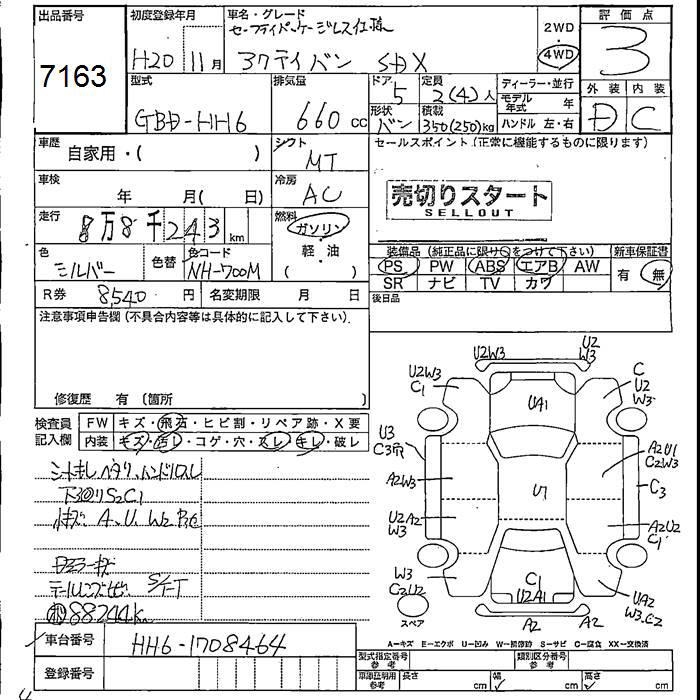 出品番号
7163
初度登録年月
H20 11月
車名・グレード
37テイバン SDX
2WD
4WD
評価点
3
外装 内装
D C
型式
GBD-HH6
排気量
660cc
ドア
5
定員
2(4)人
形状
バン
積載
350(250)kg
ディーラー・並行
モデル年式 年
ハンドル 左・右
車歴
自家用・( )
シフト
MT
セールスポイント(正常に機能するものに限ります)
車検
年 月( 日)
冷房
AC
売切りスタート
SELLOUT
走行
8万8千243km
燃料
ガソリン
軽・油
( )
色
シルバー
色替
色コード
NH-700M
装備品(純正品に限り○をつけて下さい)
PS PW ABS エアB AW
SR ナビ TV カワ
新車保証書
有 無
R券
8540円
名変期限 月 日
後日品
注意事項申告欄(不具合内容等は具体的に記入して下さい).
修復歴 有 (箇所 )
検査員記入欄
FW キズ・飛石・ヒビ割・リペア跡・X要
内装 キズ・汚レ・コゲ・穴・スレ・キレ・破レ
下回りS2C1
A.U.W2
88244K
車台番号
HH6-1708464
登録番号
U2W3
U2
W3
U2W3
C1
C
U2
W3
UA1
U3
C3
A2U1
C2W3
A2W3
U1
C3
U2A2
W3
A2U2
C1
W3
C2U2
C1
U2A1
UA2
W3.C2
スペア
A2
A2
A-キズ E-エクボ U-凹み W-補修跡 S-サビ C-腐食 XX-交換済
型式指定番号
参考
類別区分番号
参考
車庫証明用
参考
長さ cm
幅 cm
高さ cm